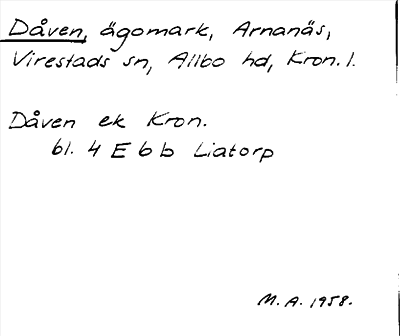 Dåven, ägomark, Arnanäs,
Virestads sn, Allbo hd, Kron. l.
Dåven ek Kron.
bl. 4 E 6 b Liatorp
M. A. 1958.